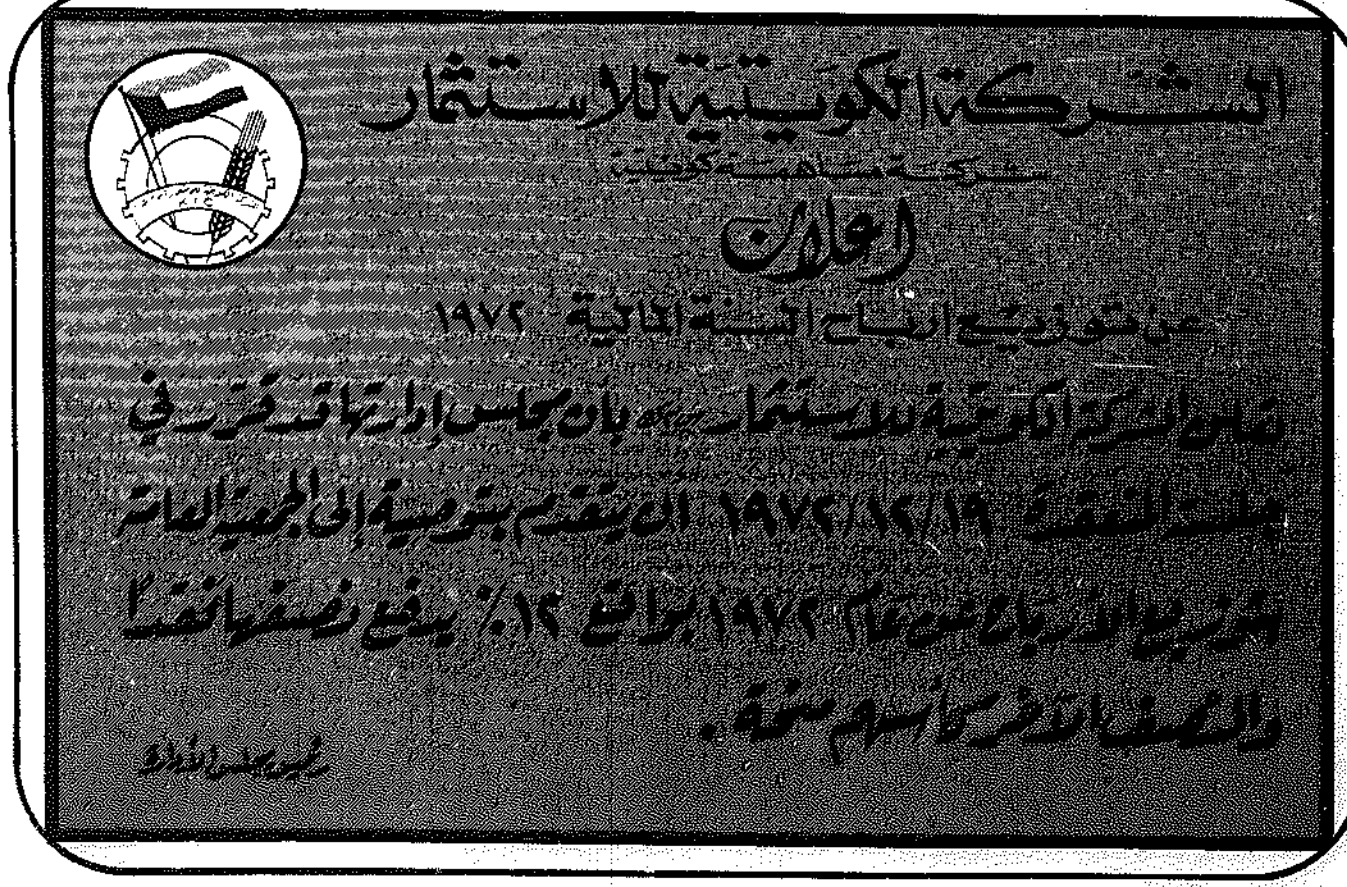 الشركة الكويتية للاستثمار
شركة مساهمة كويتية
اعلان
عن توزيع ارباح السنة المالية ١٩٧٢
تعلن الشركة الكويتية للاستثمار ش.م.ك بأن مجلس إدارتها قد قرر في
جلسته المنعقدة ١٩٧٢/١٢/١٩ ان يتقدم بتوصية إلى الجمعية العامة
بتوزيع الأرباح عن عام ١٩٧٢ بواقع ١٢٪ يدفع نصفها نقداً
والنصف الآخر كأسهم منحة .
رئيس مجلس الأدارة
K I C